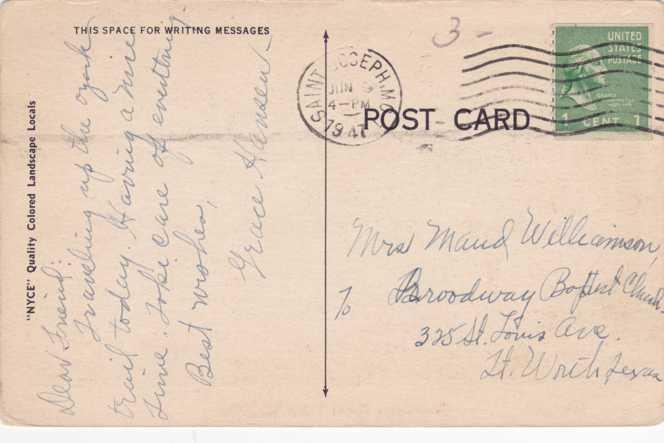 THIS SPACE FOR WRITING MESSAGES
"NYCE" Quality Colored Landscape Locals
Dear Friend:
Traveling up the Ozark
trail today. Having a nice
time. Take care of everything
Best wishes,
Grace Hansen-
3-
SAINT JOSEPH, MO.
JUN 9
4-PM
1941
UNITED
STATES
POSTAGE
1 CENT 1
POST CARD
Mrs Maud Williamson,
% Broadway Baptist Church
325 St. Louis Ave.
Ft. Worth Texas